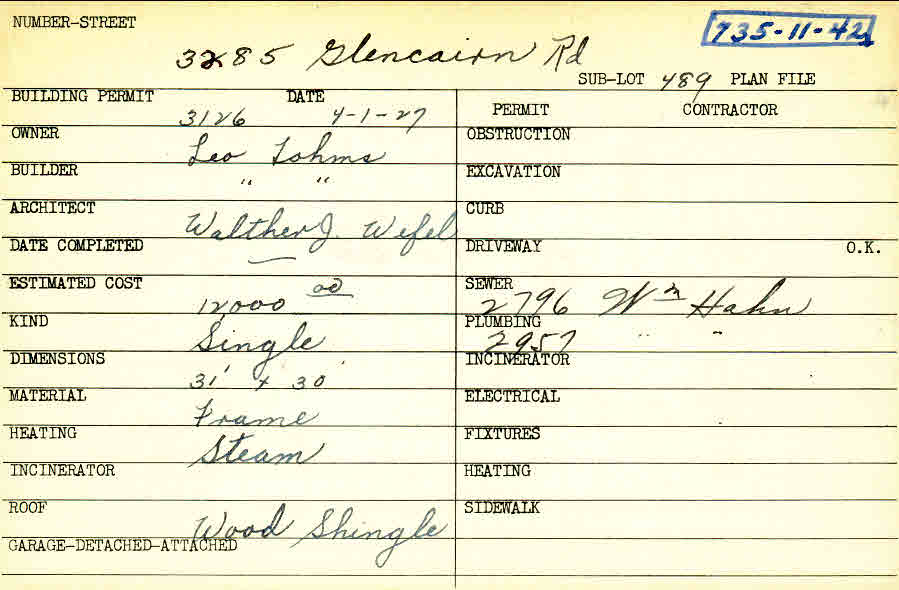 NUMBER-STREET
735-11-42
3285 Glencairn Rd
SUB-LOT 489 PLAN FILE
BUILDING PERMIT DATE
3126 4-1-27
OWNER
Leo Lohms
BUILDER
" "
ARCHITECT
Walther J. Wefel
DATE COMPLETED
—
ESTIMATED COST
12000 00
KIND
Single
DIMENSIONS
31' x 30'
MATERIAL
Frame
HEATING
Steam
INCINERATOR
ROOF
Wood Shingle
GARAGE-DETACHED-ATTACHED
PERMIT CONTRACTOR
OBSTRUCTION
EXCAVATION
CURB
DRIVEWAY O.K.
SEWER
2796 Wm Hahn
PLUMBING
2957 " "
INCINERATOR
ELECTRICAL
FIXTURES
HEATING
SIDEWALK